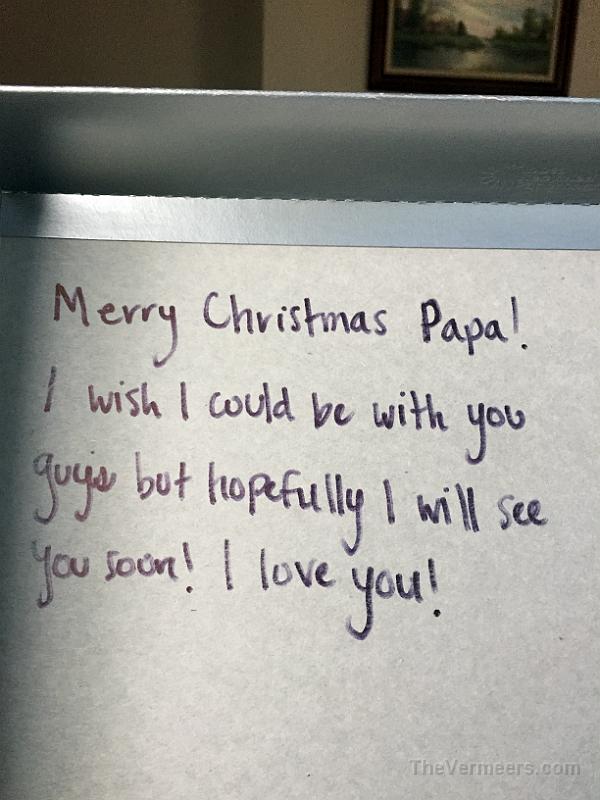 Merry Christmas Papa!
I wish I could be with you
guys but hopefully I will see
you soon! I love you!
TheVermeers.com